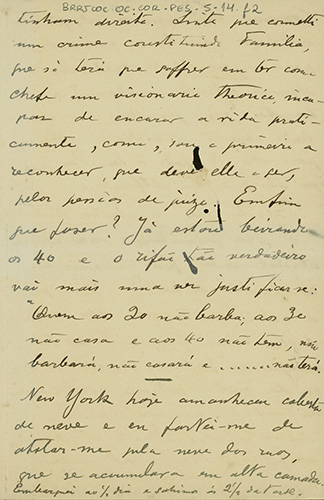 BRRJCOC OC.COR.PES.5.14.f2
tinham direito. Sinto que commetti
um crime constituindo Familia,
que só terá que soffrer em ter como
chefe um visionario theorico, incapaz
de encarar a vida prati-
camente, como, sou o primeiro a
reconhecer, que deve elle o ser,
pelas pessôas de juizo. Emfim
que fazer? Já estou beirando
os 40 e o rifão tão verdadeiro
vai mais uma vez justificar-se:
"Quem aos 20 não barba, aos 30
não casa e aos 40 não tem, não
barbará, não casará e ........ não terá.
New York hoje amanheceu coberta
de neve e eu fartei-me de
atolar-me pela neve das ruas,
que se accumulara em alta camada.
Embarquei ao ½ dia e sahimos ás 2½ da tarde.